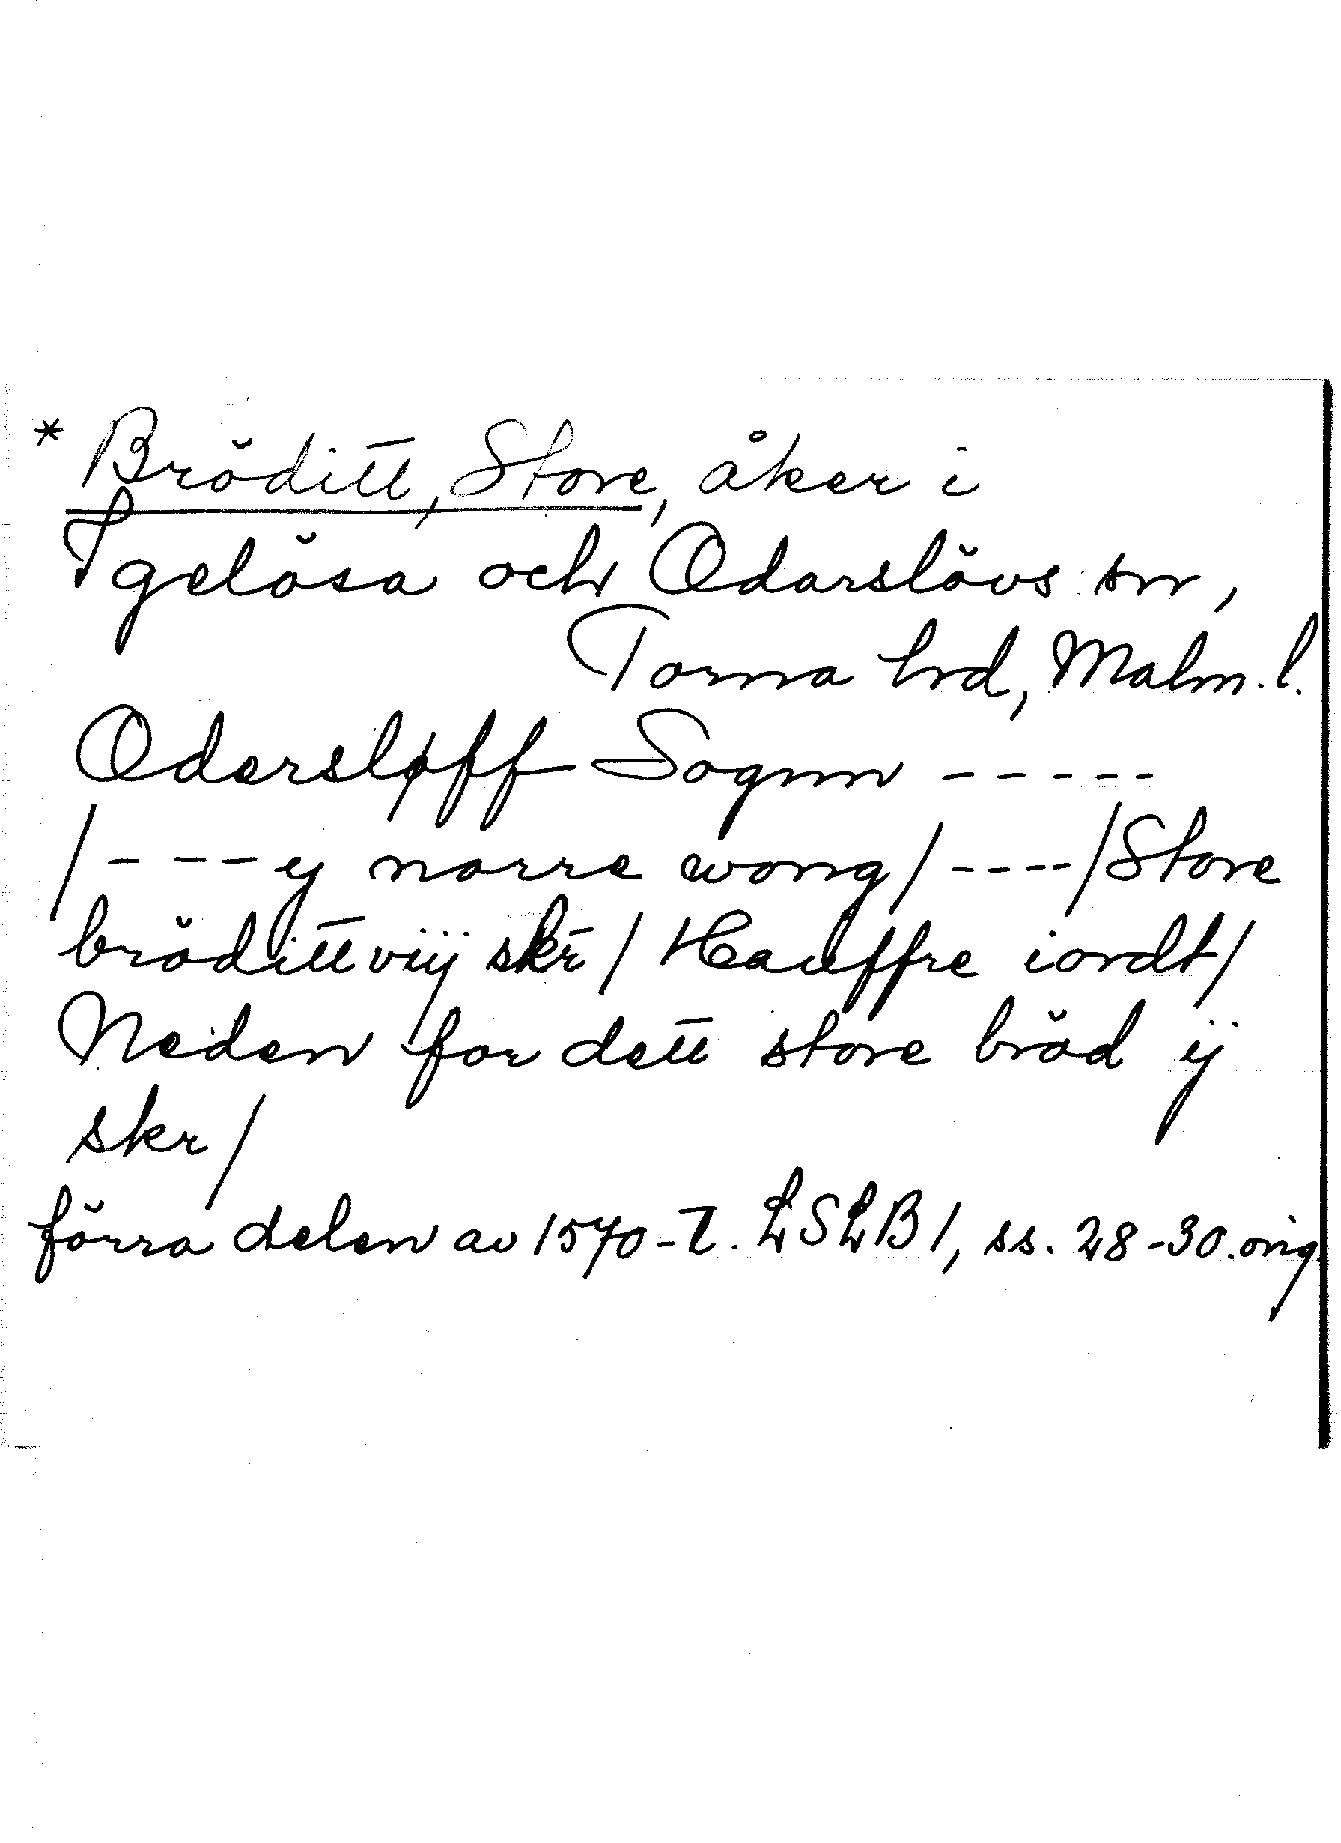 * Bröditt, Store, åker i
Igelösa och Odarslövs snr,
Torna hrd, Malm.l.
Odersløff Sognn -----
/---y norre wong/----/Store
bröditt viij skr/Hauffre iordt/
Neden for dett store bröd ij
skr/
förra delen av 1570-t. LSLB1, ss. 28-30.orig.